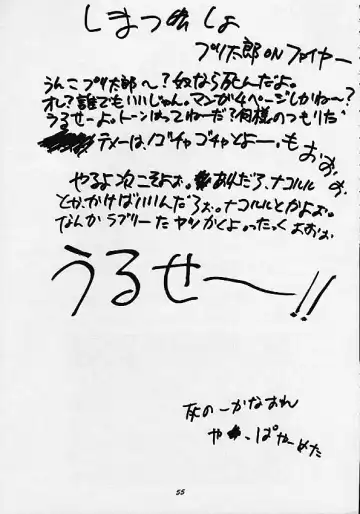 しまつ㊙しょ
ブリ太郎 ON ファイヤー
うんこブリ太郎〜?奴なら死んだよ。
オレ?誰でもいいじゃん。マンガ4ページしかねー?
うるせーよ。トーンはってねーだ?何様のつもりだ
テメーは、ゴチャゴチャとよー、も
おおおお
やるよ次こそよお。あれだろ、ナコルル
とかかけばいいんだろお。ナコルルとかよお。
なんかラブリーたヤツかくよ。ったくよおお
うるせ〜!!
灰の一かなおれ
や ぱやーめた
55